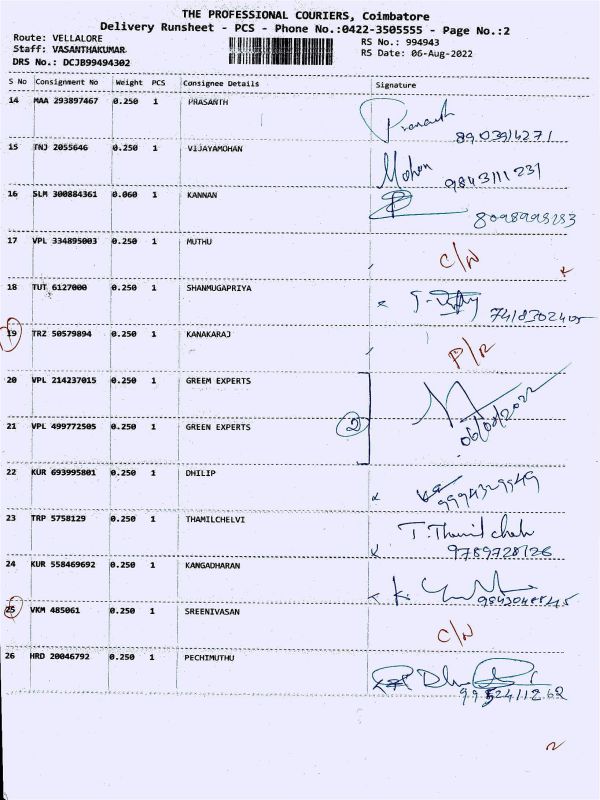 THE PROFESSIONAL COURIERS, Coimbatore
Delivery Runsheet - PCS - Phone No.:0422-3505555 - Page No.:2
Route: VELLALORE RS No.: 994943
Staff: VASANTHAKUMAR RS Date: 06-Aug-2022
DRS No.: DCJB99494302
S No Consignment No Weight PCS Consignee Details Signature
14 MAA 293897467 0.250 1 PRASANTH Prasanth
8903914271
15 TNJ 2055646 0.250 1 VIJAYAMOHAN Mohan
9843111231
16 SLM 300884361 0.060 1 KANNAN
17 VPL 334895003 0.250 1 MUTHU C/N
18 TUT 6127000 0.250 1 SHANMUGAPRIYA
19 TRZ 50579894 0.250 1 KANAKARAJ P/R
20 VPL 214237015 0.250 1 GREEM EXPERTS
21 VPL 499772505 0.250 1 GREEN EXPERTS 2 06/08/2022
22 KUR 693995801 0.250 1 DHILIP
9994329949
23 TRP 5758129 0.250 1 THAMILCHELVI T.Thamilchelvi
9789728126
24 KUR 558469692 0.250 1 KANGADHARAN K.
25 VKM 485061 0.250 1 SREENIVASAN C/N
26 HRD 20046792 0.250 1 PECHIMUTHU